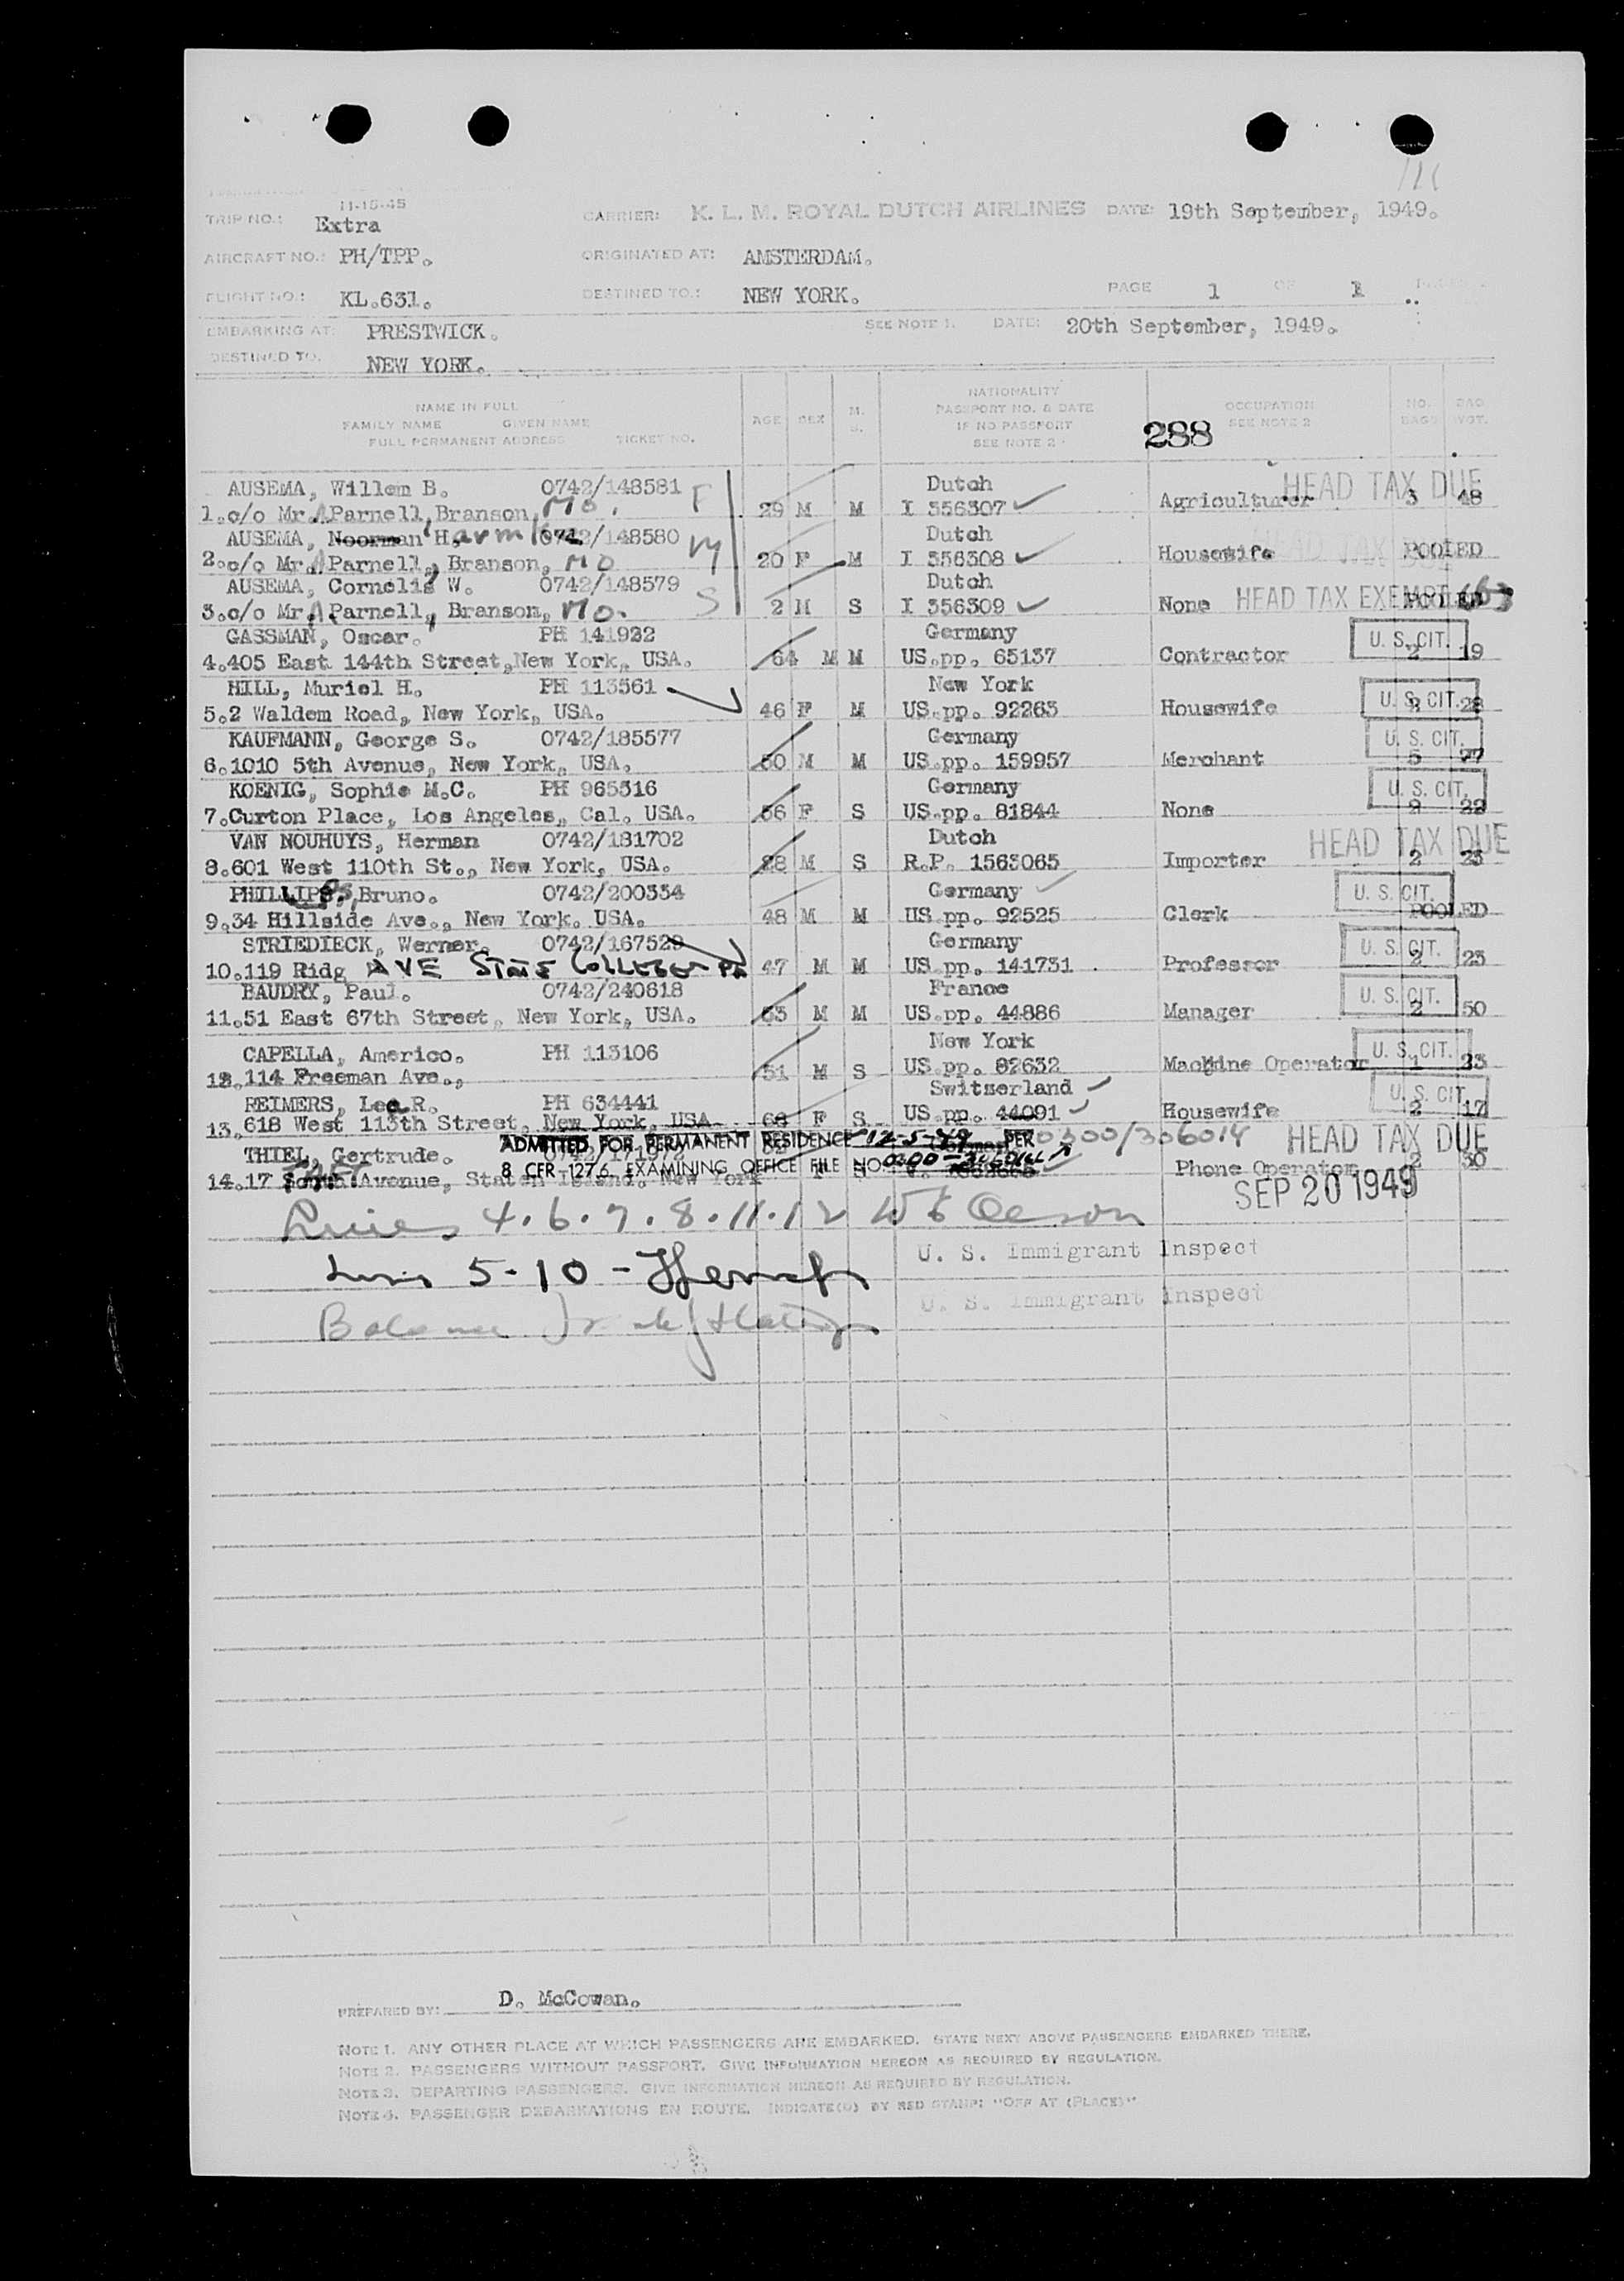 11-15-45
TRIP NO.: Extra CARRIER: K. L. M. ROYAL DUTCH AIRLINES DATE: 19th September, 1949.
AIRCRAFT NO.: PH/TPP. ORIGINATED AT: AMSTERDAM.
FLIGHT NO.: KL.631. DESTINED TO.: NEW YORK. PAGE 1 OF 1
EMBARKING AT: PRESTWICK. SEE NOTE 1. DATE: 20th September, 1949.
DESTINED TO. NEW YORK.
NAME IN FULL
FAMILY NAME GIVEN NAME
FULL PERMANENT ADDRESS TICKET NO.
AGE SEX M. S.
NATIONALITY
PASSPORT NO. & DATE
IF NO PASSPORT
SEE NOTE 2
288
OCCUPATION
SEE NOTE 2
NO. BAGS BAG. WGT.
AUSEMA, Willem B. 0742/148581 F Dutch HEAD TAX DUE
1.c/o Mr. A Parnell, Branson, Mo. 29 M M I 356307 Agriculturer 3 48
AUSEMA, Noorman H. 0742/148580 M Dutch
2.c/o Mr. A Parnell, Branson, MO 20 F M I 356308 Housewife HEAD TAX POOLED
AUSEMA, Cornelis W. 0742/148579 S Dutch
3.c/o Mr. A Parnell, Branson, Mo. 2 M S I 356309 None HEAD TAX EXEMPT
GASSMAN, Oscar. PH 141922 Germany U. S. CIT.
4.405 East 144th Street, New York, USA. 64 M M US.pp. 65137 Contractor 2 19
HILL, Muriel H. PH 113561 New York U. S. CIT.
5.2 Waldem Road, New York, USA. 46 F M US.pp. 92263 Housewife 28
KAUFMANN, George S. 0742/185577 Germany U. S. CIT.
6.1010 5th Avenue, New York, USA. 50 M M US.pp. 159957 Merchant 5 77
KOENIG, Sophie M.C. PH 965316 Germany U. S. CIT.
7.Curton Place, Los Angeles, Cal. USA. 56 F S US.pp. 81844 None 2 22
VAN NOUHUYS, Herman 0742/181702 Dutch HEAD TAX DUE
8.601 West 110th St., New York, USA. 28 M S R.P. 1563065 Importer 2 23
PHILLIPS, Bruno. 0742/200334 Germany U. S. CIT.
9.34 Hillside Ave., New York. USA. 48 M M US.pp. 92525 Clerk POOLED
STRIEDIECK, Werner. 0742/167529 Germany U. S. CIT.
10.119 Ridg AVE STATE COLLEGE PA 47 M M US.pp. 141731 Professor 2 23
BAUDRY, Paul. 0742/240618 France U. S. CIT.
11.51 East 67th Street, New York, USA. 53 M M US.pp. 44886 Manager 2 50
CAPELLA, Americo. PH 113106 New York U. S. CIT.
12.114 Freeman Ave., 51 M S US.pp. 82632 Machine Operator 1 23
REIMERS, Lea R. PH 634441 Switzerland U. S. CIT
13.618 West 113th Street, New York, USA 68 F S US.pp. 44091 Housewife 2 17
ADMITTED FOR PERMANENT RESIDENCE 12-5-49 PER 0300/306014
8 CFR 127.6. EXAMINING OFFICE FILE NO.
THIEL, Gertrude. HEAD TAX DUE
14.17 Avenue, Staten Island. New York F S Phone Operator 2 30
SEP 20 1949
Lines 4.6.7.8.11.12
U. S. Immigrant Inspect
Lines 5-10 -
U. S. Immigrant Inspect
Balance
PREPARED BY: D. McCowan.
NOTE 1. ANY OTHER PLACE AT WHICH PASSENGERS ARE EMBARKED. STATE NEXT ABOVE PASSENGERS EMBARKED THERE.
NOTE 2. PASSENGERS WITHOUT PASSPORT. GIVE INFORMATION HEREON AS REQUIRED BY REGULATION.
NOTE 3. DEPARTING PASSENGERS. GIVE INFORMATION HEREON AS REQUIRED BY REGULATION.
NOTE 4. PASSENGER DEBARKATIONS EN ROUTE. INDICATE(D) BY RED STAMP: "OFF AT (PLACE)"